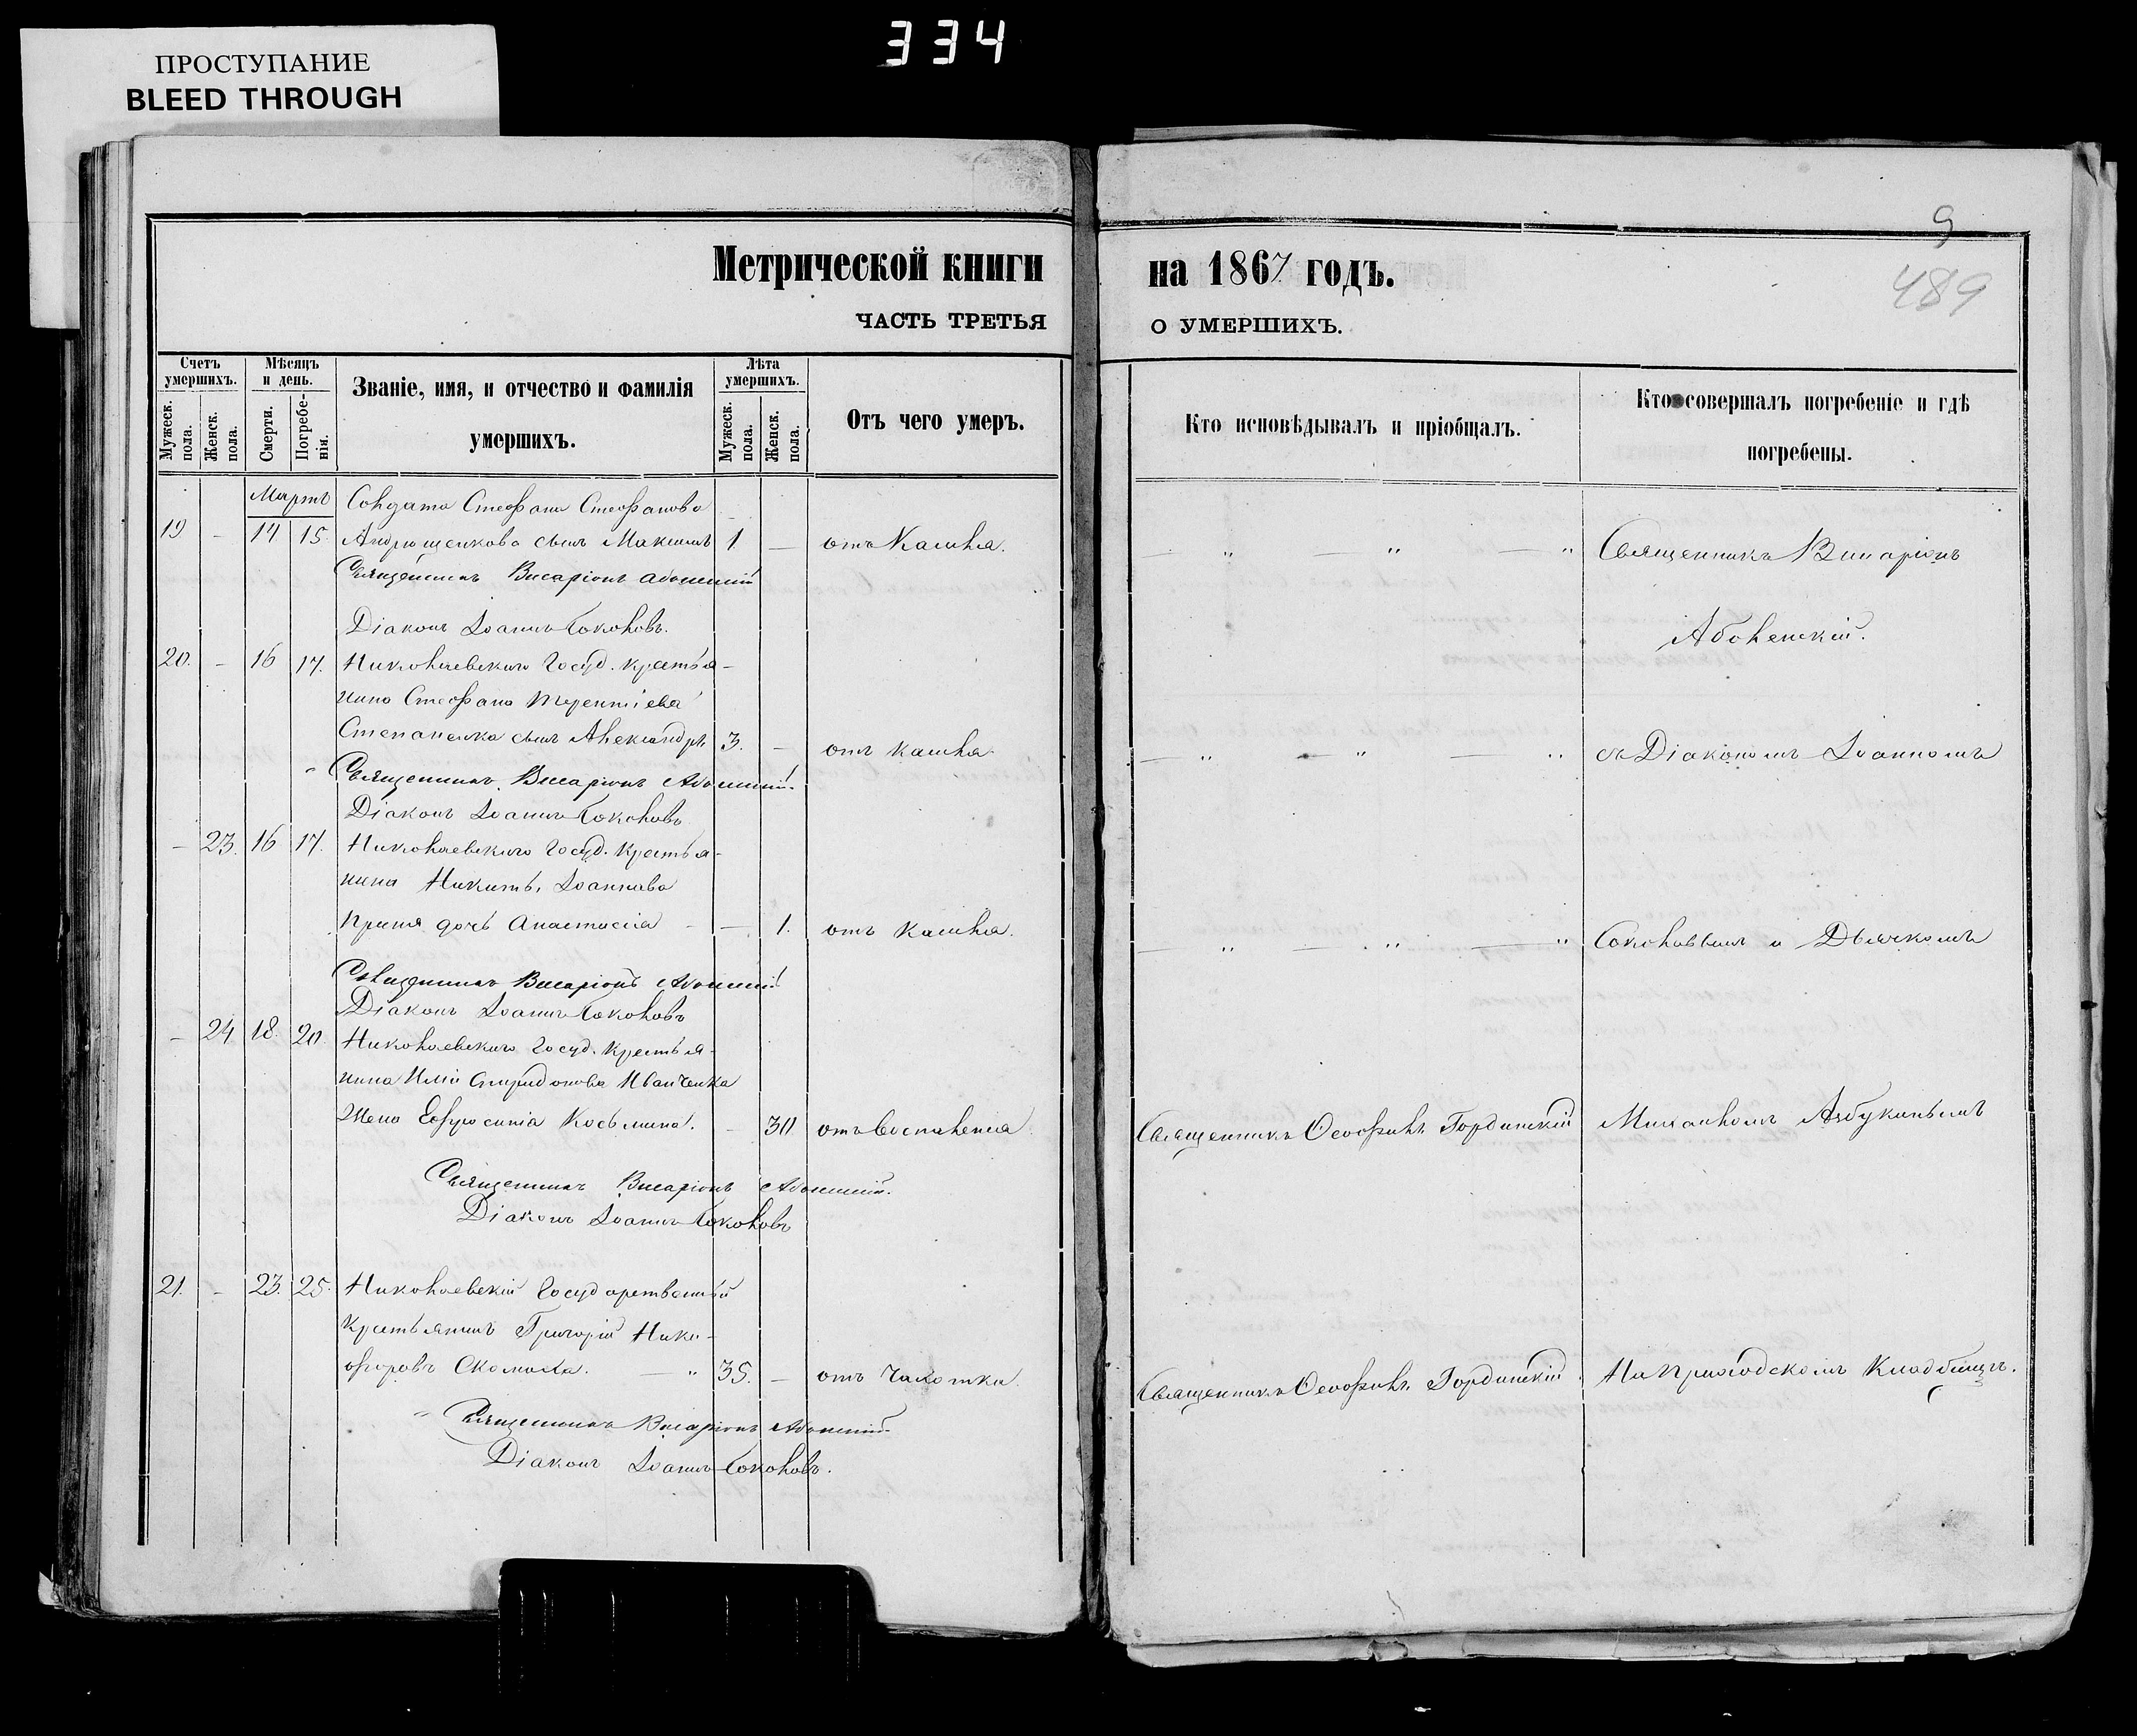 334
ПРОСТУПАНИЕ
BLEED THROUGH
9
489
Метрической книги на 1867 годъ.
ЧАСТЬ ТРЕТЬЯ О УМЕРШИХЪ.
Счетъ умершихъ.
Мужеск. пола.
Женск. пола.
Мѣсяцъ и день.
Смерти.
Погребенія.
Званіе, имя, и отчество и фамилія
умершихъ.
Лѣта умершихъ.
Мужеск. пола.
Женск. пола.
Отъ чего умеръ.
Кто исповѣдывалъ и пріобщалъ.
Кто совершалъ погребеніе и гдѣ
погребены.
Мартъ Солдата Стефана Стефанова
19 - 14 15. Андрющенкова сынъ Максимъ 1. — отъ Кашля. — „ — „ — „ Священникъ Висаріонъ
Священникъ Висаріонъ
Діаконъ Іоаннъ Соколовъ.
20. - 16 17. Николаевскаго Госуд. крестья-
нина Стефана Терентіева
Степаненка сынъ Александръ 3. — отъ кашля — „ — „ — „ съ Діакономъ Іоанномъ
Священникъ Висаріонъ
Діаконъ Іоаннъ Соколовъ
— 23. 16 17. Николаевскаго Госуд. Крестья-
нина Никиты Іоаннова
дочь Анастасія — 1. отъ кашля. — „ — „ — „ Соколовымъ и Дьячкомъ
Священникъ Висаріонъ
Діаконъ Іоаннъ Соколовъ
— 24 18. 20. Николаевскаго Госуд. Крестья-
нина Иліи Спиридонова Иванченка
Жена Евфросинія Косьмина. — 30 отъ воспаленія Священникъ Ѳеофилъ Гординскій Михаиломъ Азбукинымъ
Священникъ Висаріонъ
Діаконъ Іоаннъ Соколовъ
21. - 23. 25. Николаевскій Государственный
Крестьянинъ Григорій Ники-
форовъ — „ 35. — отъ Чахотки. Священникъ Ѳеофилъ Гординскій. На приходскомъ Кладбищѣ.
Священникъ Висаріонъ
Діаконъ Іоаннъ Соколовъ.